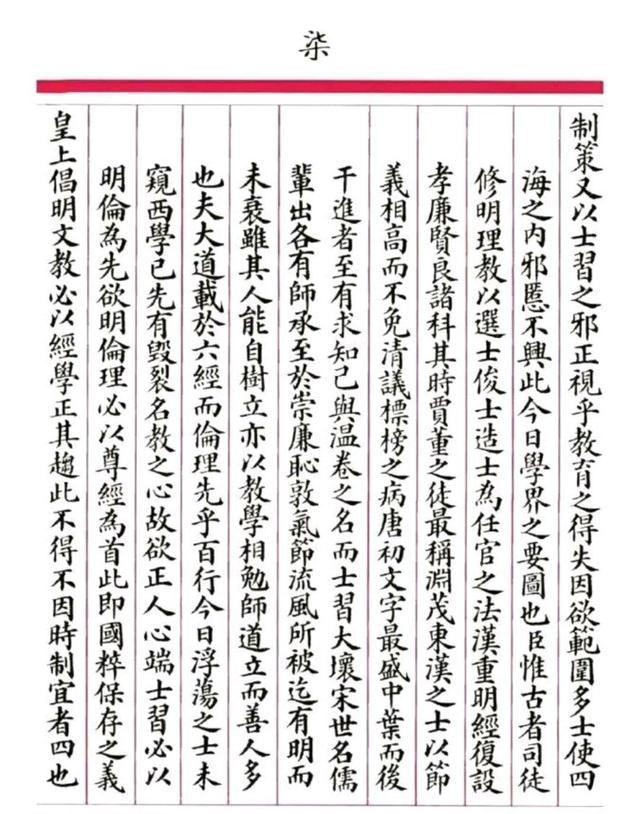 柒
制策又以士習之邪正視乎教育之得失因欲範圍多士使四
海之内邪慝不興此今日學界之要圖也臣惟古者司徒
修明理教以選士俊士造士為任官之法漢重明經復設
孝廉賢良諸科其時賈董之徒最稱淵茂東漢之士以節
義相高而不免清議標榜之病唐初文字最盛中葉而後
干進者至有求知己與温卷之名而士習大壞宋世名儒
輩出各有師承至於崇廉恥敦氣節流風所被迄有明而
未衰雖其人能自樹立亦以教學相勉師道立而善人多
也夫大道載於六經而倫理先乎百行今日浮蕩之士未
窺西學已先有毀裂名教之心故欲正人心端士習必以
明倫為先欲明倫理必以尊經為首此即國粹保存之義
皇上倡明文教必以經學正其趨此不得不因時制宜者四也